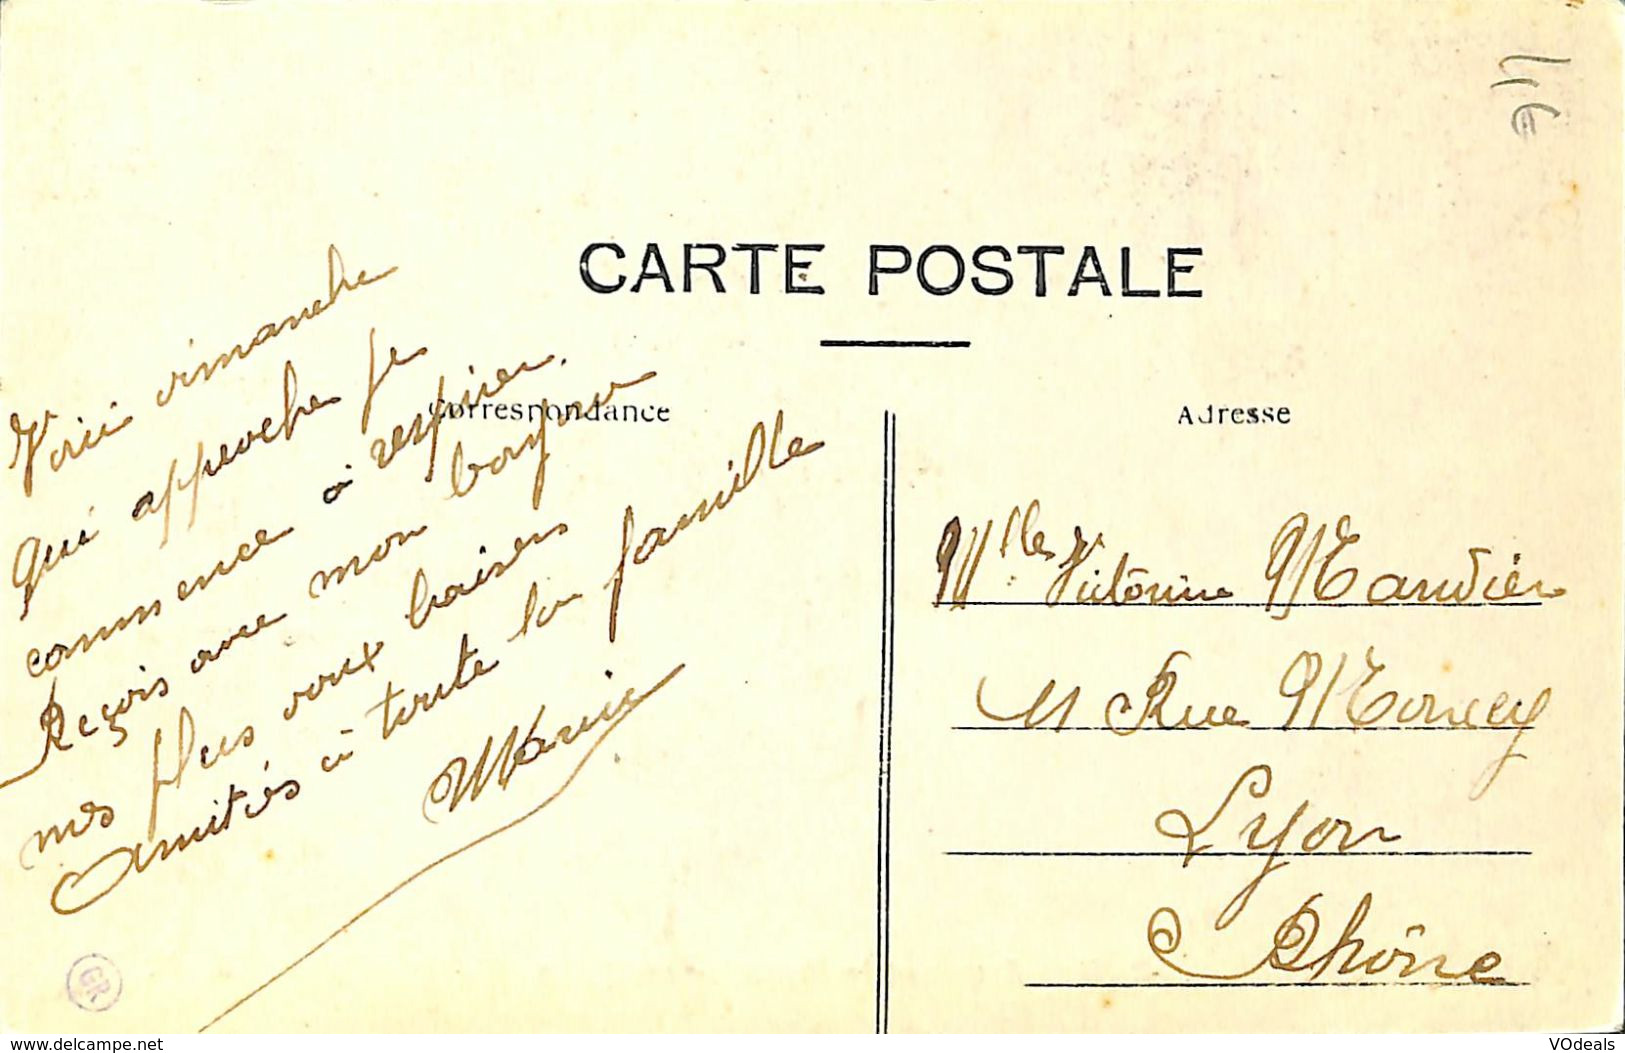 CARTE POSTALE
Correspondance
Voici dimanche
qui approche je
commence à respirer.
Reçois avec mon bonjour
mes plus doux baisers
Amitiés à toute la famille
Marie
Adresse
Mlle Victorine Mandier
11 Rue Moncey
Lyon
Rhône
GR
www.delcampe.net
VOdeals